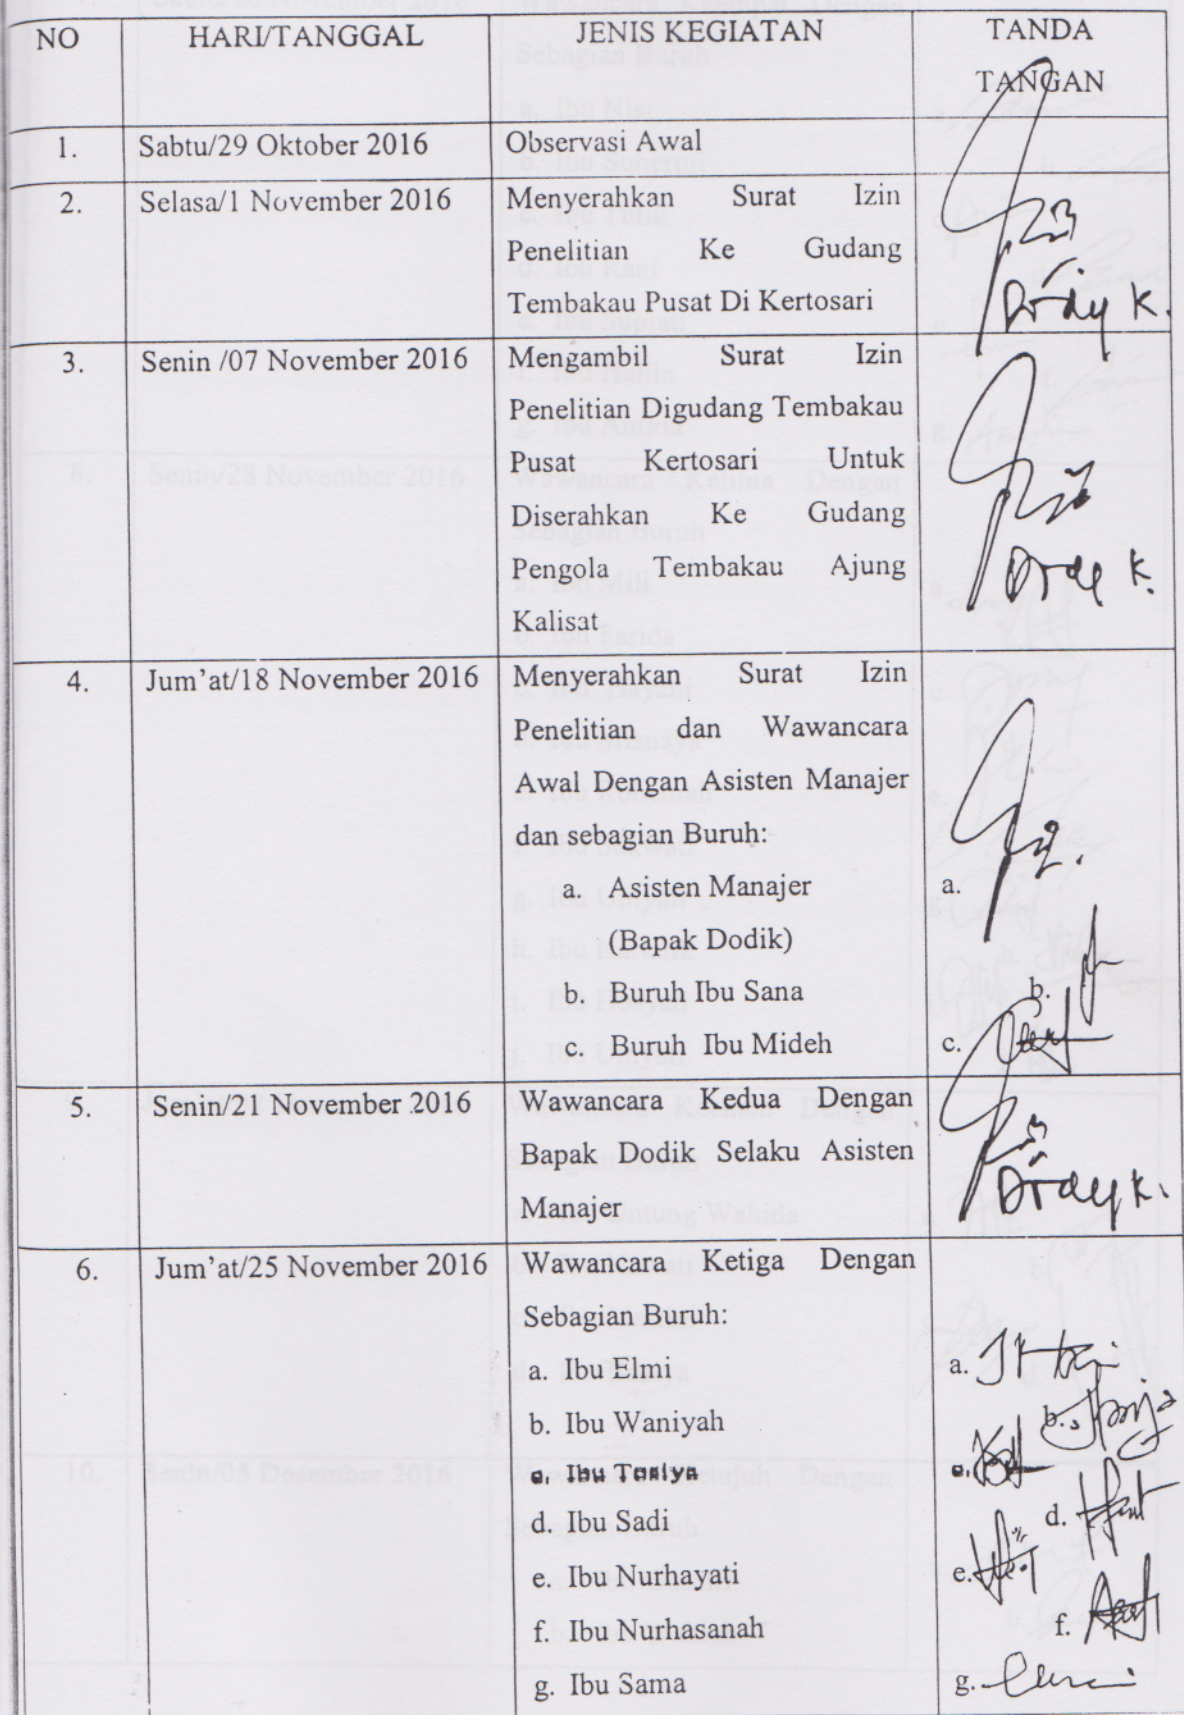 NO HARI/TANGGAL JENIS KEGIATAN TANDA
TANGAN
1. Sabtu/29 Oktober 2016 Observasi Awal
2. Selasa/1 November 2016 Menyerahkan Surat Izin
Penelitian Ke Gudang
Tembakau Pusat Di Kertosari
3. Senin /07 November 2016 Mengambil Surat Izin
Penelitian Digudang Tembakau
Pusat Kertosari Untuk
Diserahkan Ke Gudang
Pengola Tembakau Ajung
Kalisat
4. Jum'at/18 November 2016 Menyerahkan Surat Izin
Penelitian dan Wawancara
Awal Dengan Asisten Manajer
dan sebagian Buruh:
a. Asisten Manajer a.
(Bapak Dodik)
b. Buruh Ibu Sana b.
c. Buruh Ibu Mideh c.
5. Senin/21 November 2016 Wawancara Kedua Dengan
Bapak Dodik Selaku Asisten
Manajer
6. Jum'at/25 November 2016 Wawancara Ketiga Dengan
Sebagian Buruh:
a. Ibu Elmi a.
b. Ibu Waniyah b.
Ibu
d. Ibu Sadi d.
e. Ibu Nurhayati e.
f. Ibu Nurhasanah f.
g. Ibu Sama g.